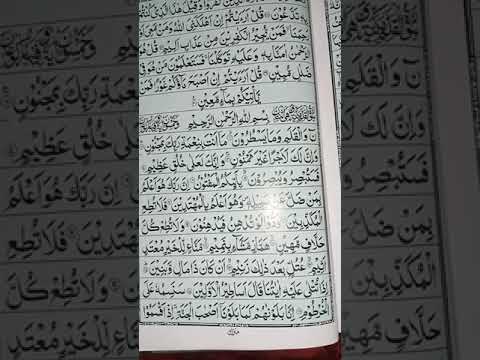 تَدَّعُوْنَ قُلْ اَرَءَيْتُمْ اِنْ اَهْلَكَنِیَ اللّٰهُ وَمَنْ مَّعِیَ اَوْ
رَحِمَنَا فَمَنْ يُّجِيْرُ الْكٰفِرِيْنَ مِنْ عَذَابٍ اَلِيْمٍ قُلْ هُوَ
الرَّحْمٰنُ اٰمَنَّا بِهٖ وَعَلَيْهِ تَوَكَّلْنَا فَسَتَعْلَمُوْنَ مَنْ هُوَ فِیْ
ضَلٰلٍ مُّبِيْنٍ قُلْ اَرَءَيْتُمْ اِنْ اَصْبَحَ مَآؤُكُمْ غَوْرًا فَمَنْ
يَّاْتِيْكُمْ بِمَآءٍ مَّعِيْنٍ
بِسْمِ اللّٰهِ الرَّحْمٰنِ الرَّحِيْمِ
نٓ وَالْقَلَمِ وَمَا يَسْطُرُوْنَ مَآ اَنْتَ بِنِعْمَةِ رَبِّكَ بِمَجْنُوْنٍ
وَاِنَّ لَكَ لَاَجْرًا غَيْرَ مَمْنُوْنٍ وَاِنَّكَ لَعَلٰی خُلُقٍ عَظِيْمٍ
فَسَتُبْصِرُ وَيُبْصِرُوْنَ بِاَيِّكُمُ الْمَفْتُوْنُ اِنَّ رَبَّكَ هُوَ اَعْلَمُ
بِمَنْ ضَلَّ عَنْ سَبِيْلِهٖ وَهُوَ اَعْلَمُ بِالْمُهْتَدِيْنَ فَلَا تُطِعِ
الْمُكَذِّبِيْنَ وَدُّوْا لَوْ تُدْهِنُ فَيُدْهِنُوْنَ وَلَا تُطِعْ كُلَّ
حَلَّافٍ مَّهِيْنٍ هَمَّازٍ مَّشَّآءٍ بِنَمِيْمٍ مَّنَّاعٍ لِّلْخَيْرِ مُعْتَدٍ
اَثِيْمٍ عُتُلٍّ بَعْدَ ذٰلِكَ زَنِيْمٍ اَنْ كَانَ ذَا مَالٍ وَّبَنِيْنَ
اِذَا تُتْلٰی عَلَيْهِ اٰيٰتُنَا قَالَ اَسَاطِيْرُ الْاَوَّلِيْنَ سَنَسِمُهٗ عَلَی
الْخُرْطُوْمِ اِنَّا بَلَوْنٰهُمْ كَمَا بَلَوْنَآ اَصْحٰبَ الْجَنَّةِ اِذْ اَقْسَمُوْا